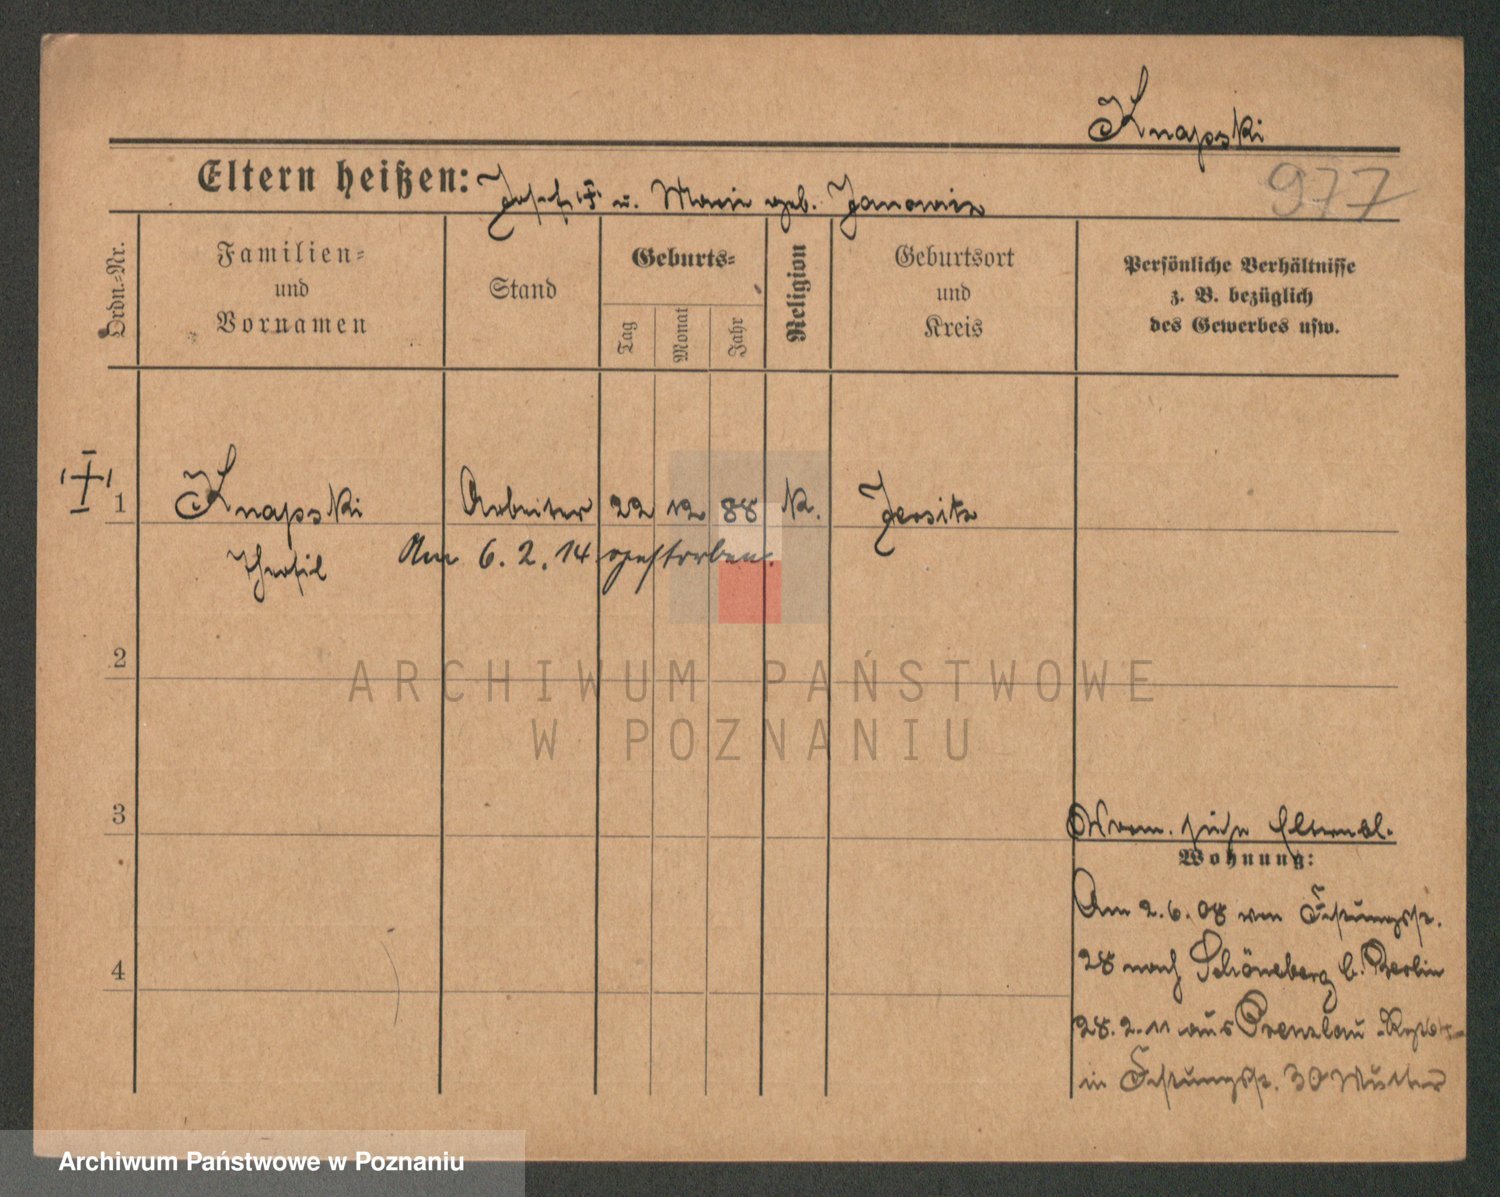 Knapski
Eltern heißen: Josef u. Marie geb. Janowicz
977
Ordn.=Nr.
Familien=
und
Vornamen
Stand
Geburts=
Tag
Monat
Jahr
Religion
Geburtsort
und
Kreis
Persönliche Verhältnisse
z. B. bezüglich
des Gewerbes usw.
1 Knapski Arbeiter 22 12 88 k. Jersitz
Theofil Am 6. 2. 14 gestorben.
2
ARCHIWUM PAŃSTWOWE
W POZNANIU
3
Vorm. siehe Elternbl.
Wohnung:
Am 2. 6. 08 von Festungsstr.
28 nach Schöneberg b. Berlin
4
28. 2. 11 aus Prenzlau
in Festungsstr. 30 Mutter
Archiwum Państwowe w Poznaniu